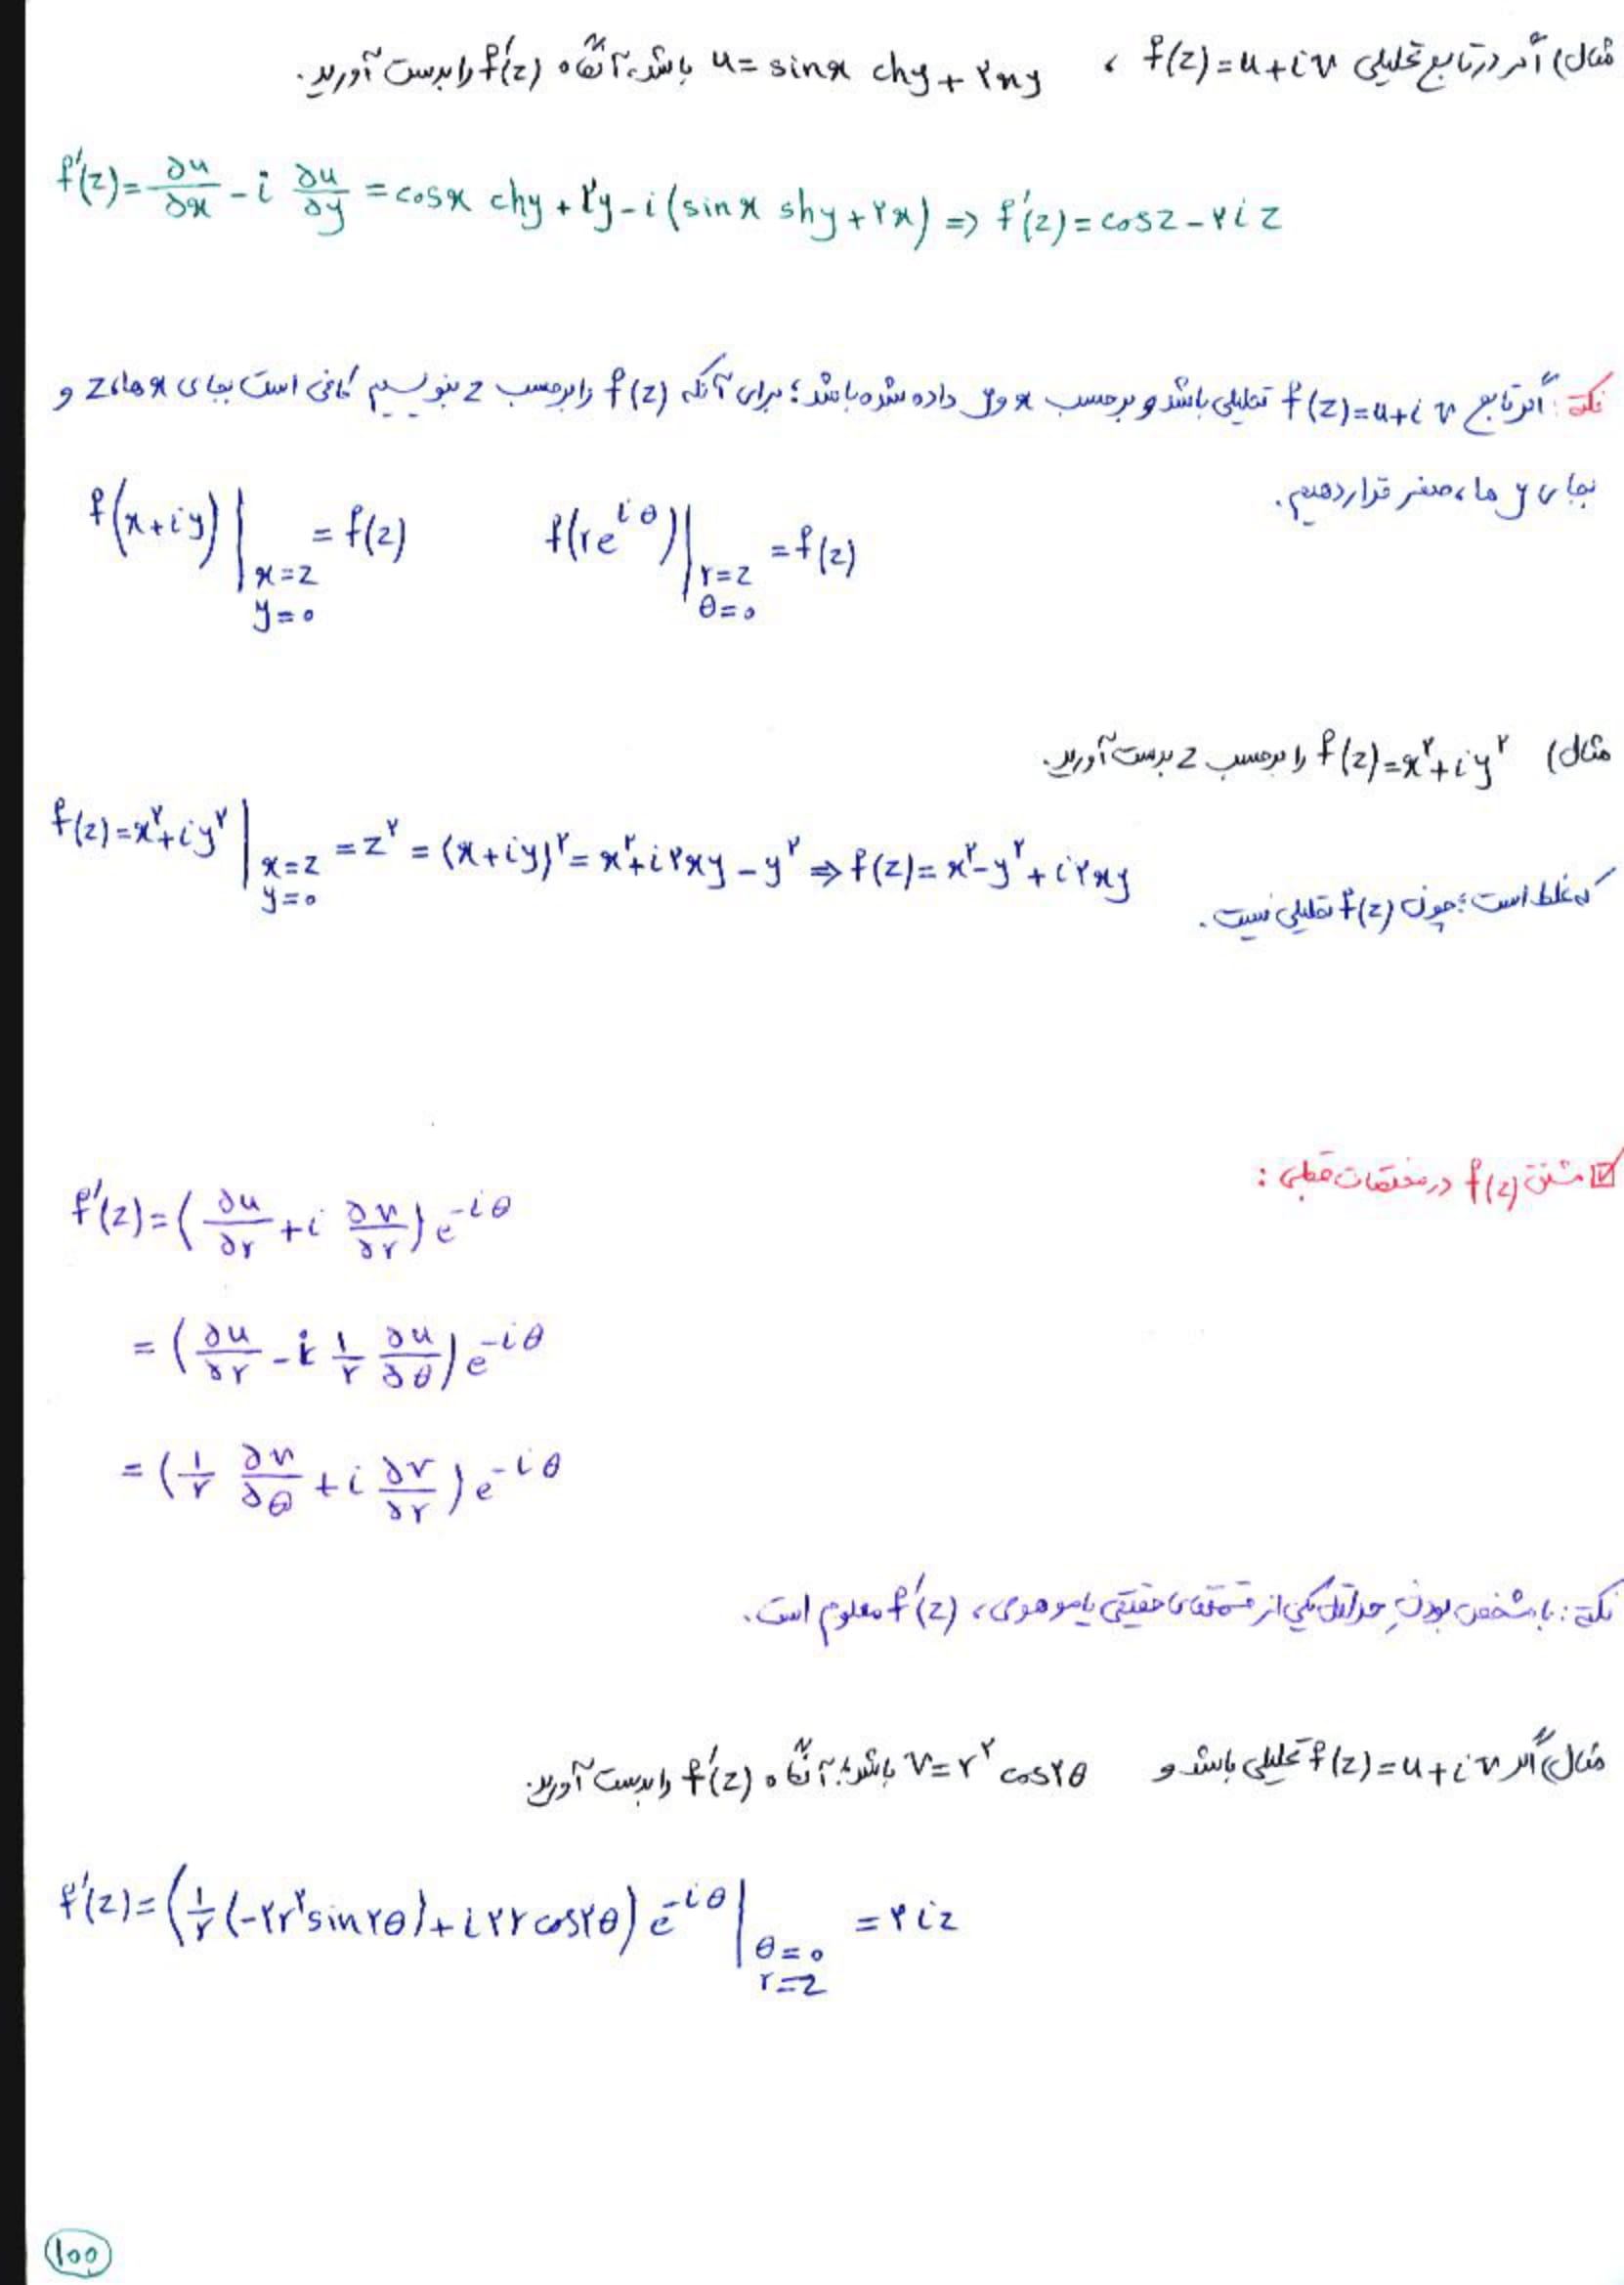 مثال) اگر در تابع تحلیلی f(z)=u+iv ، u= sinx chy + ۲xy باشد، آنگاه f′(z) را بدست آورید.
f′(z)= ∂u/∂x - i ∂u/∂y = cosx chy + ۲y - i(sinx shy + ۲x) ⇒ f′(z)= cosz - ۲iz
نکته: اگر تابع f(z)=u+iv تحلیلی باشد و برحسب x و y داده شده باشد؛ برای آنکه f(z) را برحسب z بنویسیم کافی است بجای x ها، z و
بجای y ها، صفر قرار دهیم.
f(x+iy)|x=z y=0 = f(z)    f(re^iθ)|r=z θ=0 = f(z)
مثال) f(z)=x²+iy² را برحسب z بدست آورید.
f(z)=x²+iy²|x=z y=0 = z² = (x+iy)² = x²+i۲xy-y² ⇒ f(z)= x²-y²+i۲xy
که غلط است؛ چون f(z) تحلیلی نیست.
☑ مشتق f(z) در مختصات قطبی:
f′(z)=(∂u/∂r + i ∂v/∂r) e^-iθ
=(∂u/∂r - i 1/r ∂u/∂θ) e^-iθ
=(1/r ∂v/∂θ + i ∂v/∂r) e^-iθ
نکته: با مشخص بودنِ حداقل یکی از قسمتهای حقیقی یا موهومی، f′(z) معلوم است.
مثال) اگر f(z)=u+iv تحلیلی باشد و v=r² cos۲θ باشد؛ آنگاه f′(z) را بدست آورید.
f′(z)=(1/r (-۲r² sin۲θ)+i۲r cos۲θ) e^-iθ|θ=0 r=z = ۲iz
100